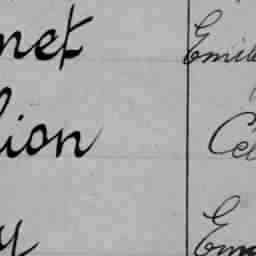 net Emile
lion Cél
y Em